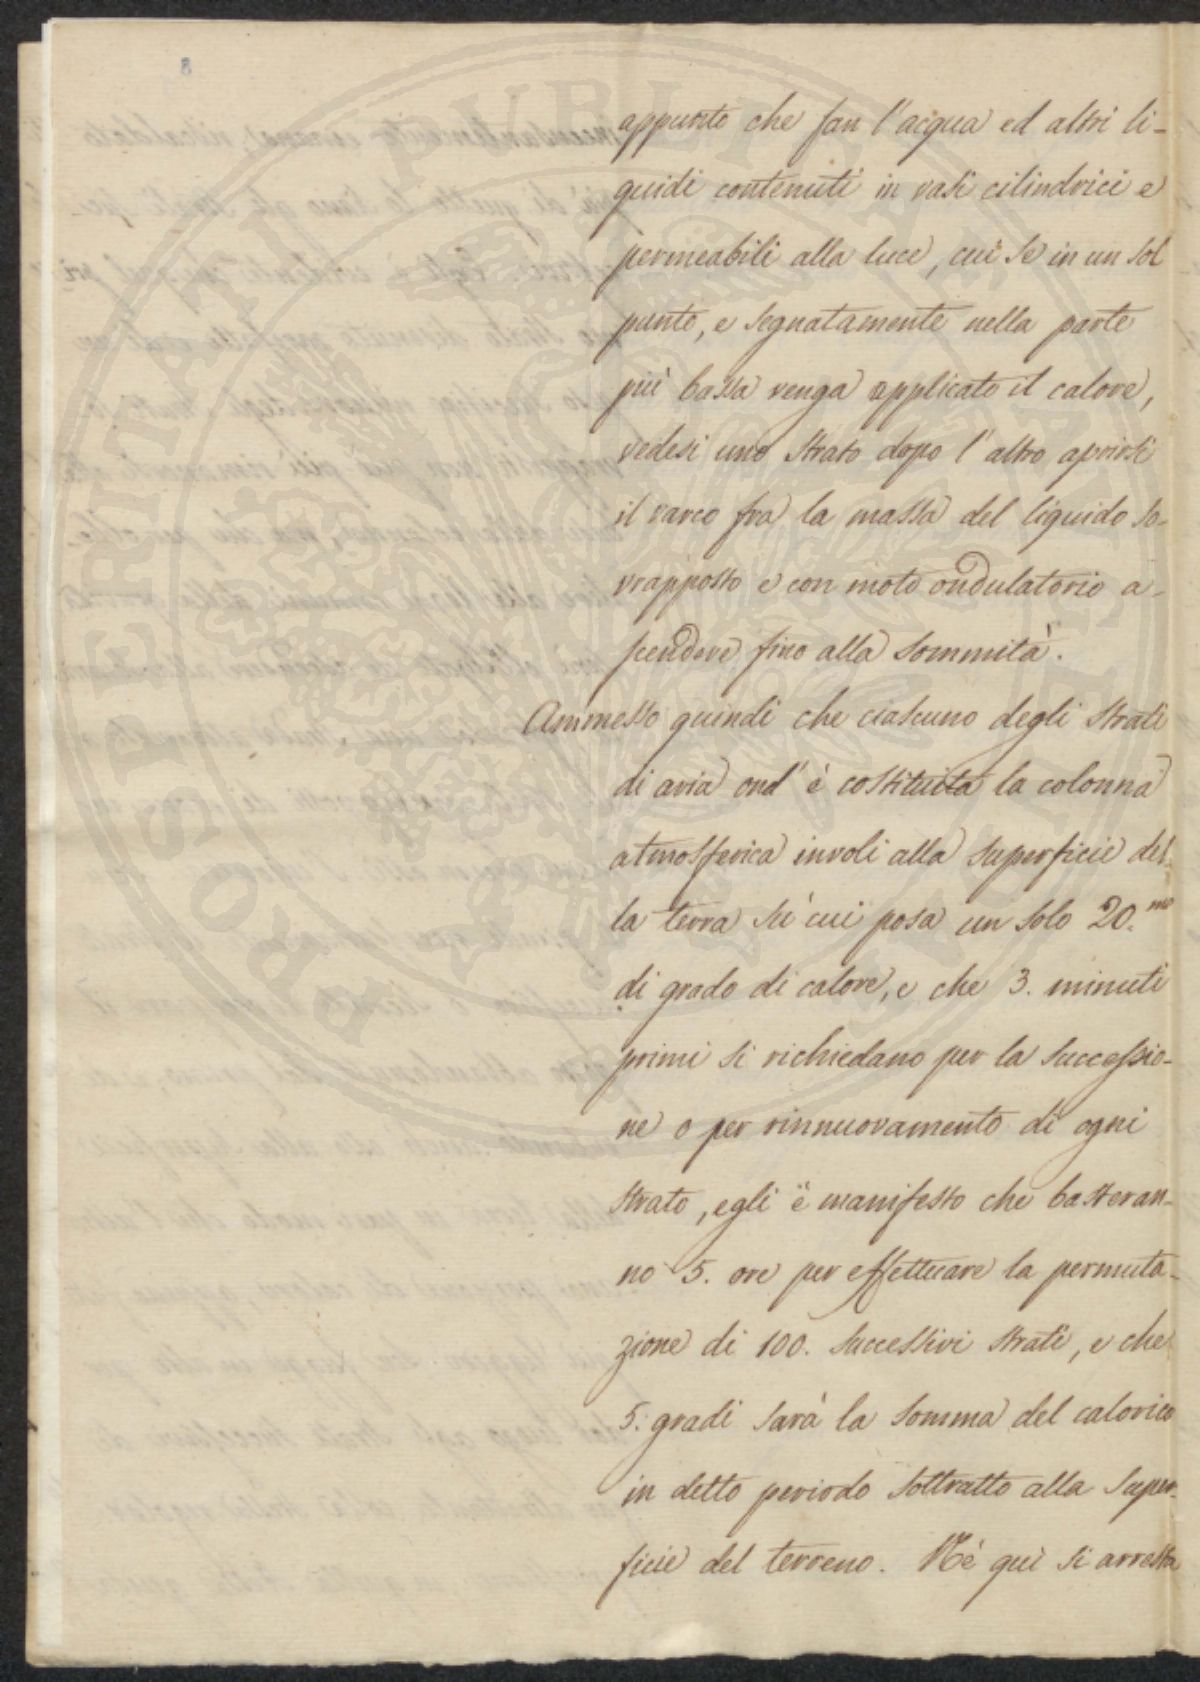 8
appunto che fan l'acqua ed altri li-
quidi contenuti in vasi cilindrici e
permeabili alla luce, cui se in un sol
punto, e segnatamente nella parte
più bassa venga applicato il calore,
vedesi uno strato dopo l'altro aprirsi
il varco fra la massa del liquido so-
vrapposto e con moto ondulatorio a-
scendere fino alla sommità.
Ammesso quindi che ciascuno degli strati
di aria ond'è costituita la colonna
atmosferica involi alla superficie del-
la terra su cui posa un solo 20.mo
di grado di calore, e che 3. minuti
primi si richiedano per la successio-
ne o per rinnuovamento di ogni
strato, egli è manifesto che basteran-
no 5. ore per effettuare la permuta-
zione di 100. successivi strati, e che
5. gradi sarà la somma del calorico
in detto periodo sottratto alla super-
ficie del terreno. Nè quì si arresta
PROSPERITATI PUBLICAE AUGENDAE